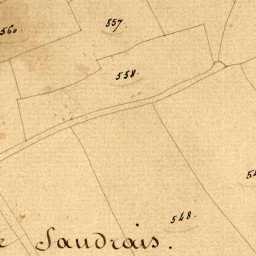 557
560
558.
548.
Saudrais.